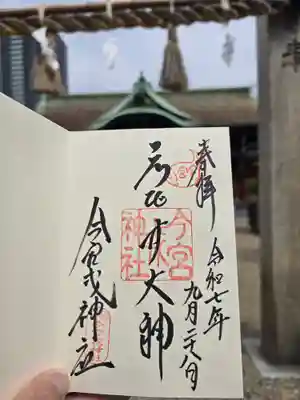 奉拝
令和七年
九月
大神
今宮
戎
神社
今宮戎神社